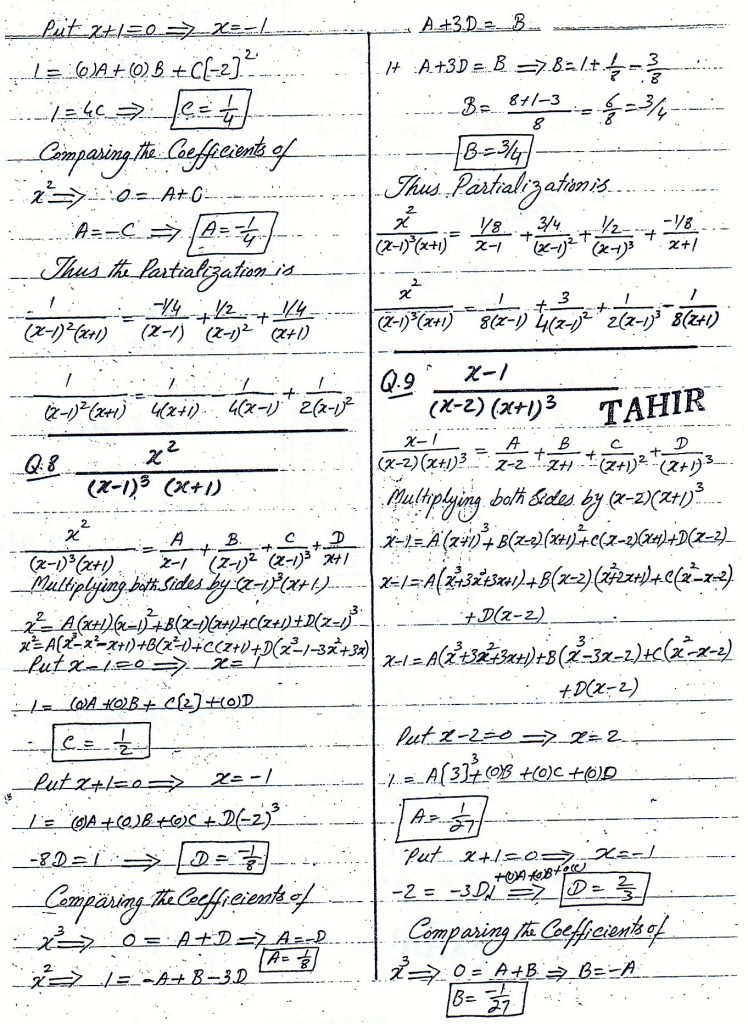 Put x+1=0 ⟹ x=-1
1 = (0)A+(0)B+C[-2]²
1=4C ⟹ C = 1/4
Comparing the Coefficients of
x² ⟹ 0 = A+C
A=-C ⟹ A=-1/4
Thus the Partialization is
1/((x-1)²(x+1)) = (-1/4)/(x-1) + (1/2)/(x-1)² + (1/4)/(x+1)
1/((x-1)²(x+1)) = 1/(4(x+1)) - 1/(4(x-1)) + 1/(2(x-1)²)
Q.8 x²/((x-1)³ (x+1))
x²/((x-1)³(x+1)) = A/(x-1) + B/(x-1)² + C/(x-1)³ + D/(x+1)
Multiplying both sides by (x-1)³(x+1)
x²= A(x+1)(x-1)²+B(x-1)(x+1)+C(x+1)+D(x-1)³
x²=A(x³-x²-x+1)+B(x²-1)+C(x+1)+D(x³-1-3x²+3x)
Put x-1=0 ⟹ x=1
1= (0)A+(0)B+ C[2]+(0)D
C = 1/2
Put x+1=0 ⟹ x=-1
1= (0)A+(0)B+(0)C+D(-2)³
-8D=1 ⟹ D=-1/8
Comparing the Coefficients of
x³ ⟹ 0 = A+D ⟹ A=-D
A=1/8
x² ⟹ 1=-A+B-3D
A+3D= B
1+ A+3D=B ⟹ B=1+1/8-3/8
B= (8+1-3)/8 = 6/8 = 3/4
B=3/4
Thus Partialization is
x²/((x-1)³(x+1)) = (1/8)/(x-1) + (3/4)/(x-1)² + (1/2)/(x-1)³ + (-1/8)/(x+1)
x²/((x-1)³(x+1)) = 1/(8(x-1)) + 3/(4(x-1)²) + 1/(2(x-1)³) - 1/(8(x+1))
Q.9 x-1/((x-2)(x+1)³)
TAHIR
x-1/((x-2)(x+1)³) = A/(x-2) + B/(x+1) + C/(x+1)² + D/(x+1)³
Multiplying both Sides by (x-2)(x+1)³
x-1=A(x+1)³+B(x-2)(x+1)²+C(x-2)(x+1)+D(x-2)
x-1=A(x³+3x²+3x+1)+B(x-2)(x²+2x+1)+C(x²-x-2)
+D(x-2)
x-1=A(x³+3x²+3x+1)+B(x³-3x-2)+C(x²-x-2)
+D(x-2)
Put x-2=0 ⟹ x=2
1= A[3]³+(0)B+(0)C+(0)D
A=1/27
Put x+1=0 ⟹ x=-1
+(0)A+(0)B+0(C)
-2 = -3D ⟹ D=2/3
Comparing the Coefficients of
x³ ⟹ 0=A+B ⟹ B=-A
B=-1/27